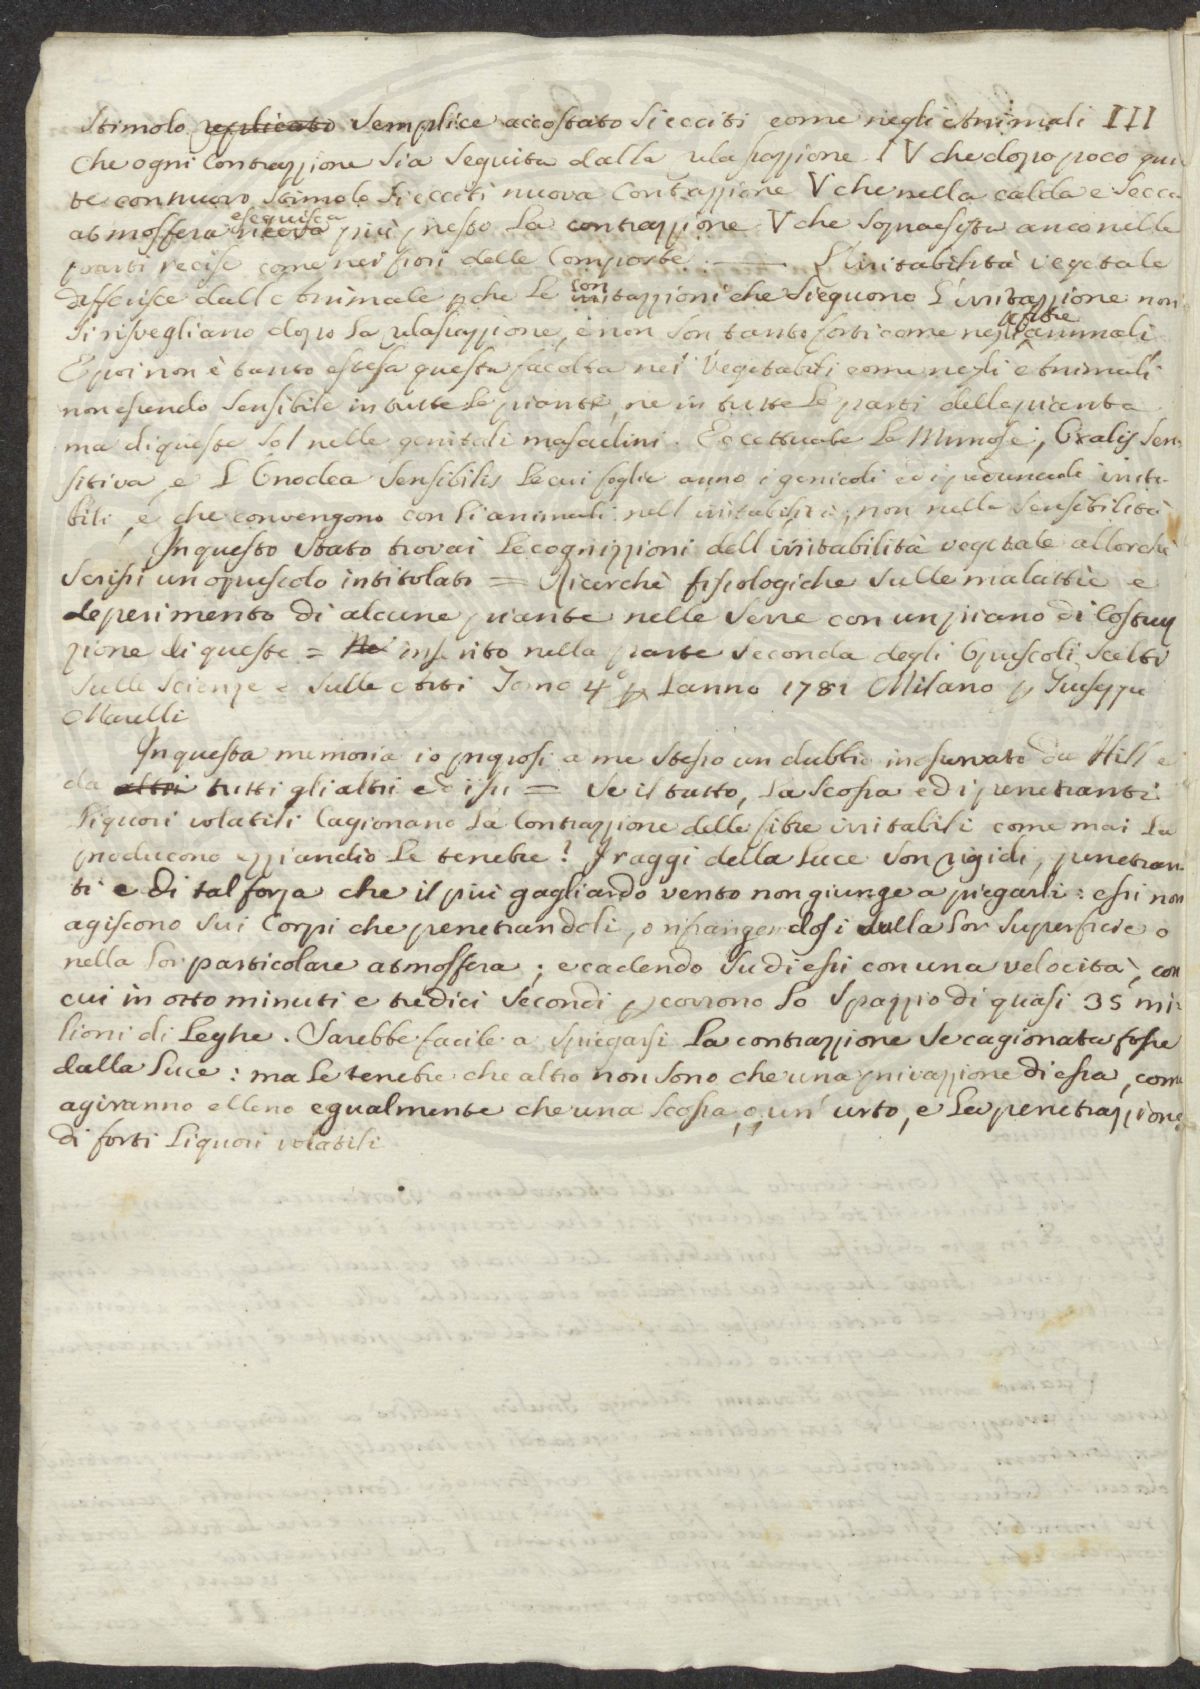 stimolo replicato semplice accostato si ecciti come negli Animali III
che ogni Contrazzione sia seguita dalla rilasciazzione. IV che dopo poco
te con nuovo stimolo si ecciti nuova Contrazzione V che nella calda e secca
atmosfera riceva eseguisca più presto la contrazzione V che sopraesista anco nelle
parti recise come nei fiori delle Composte. — L'irritabilità vegetale
differisce dall'Animale pche le con irritazzioni che sieguono l'irritazzione non
si risvegliano dopo la rilasciazzione, e non son tanto forti come negli altre animali
E poi non è tanto estesa questa facoltà nei Vegetabili come negli Animali
non essendo sensibile in tutte le piante, ne in tutte le parti della pianta
ma di queste sol nelle genitali mascoline. Eccettuate le Mimose, Oxalis Sen-
sitiva, e L'Onoclea Sensibilis le cui foglie anno i genicoli ed i peduncoli irrita-
bili, e che convengono con li animali nell'irritabilità, non nella sensibilità
In questo stato trovai le cognizzioni dell'irritabilità vegetale allorchè
scrissi un opuscolo intitolato = Ricerche fisiologiche sulle malattie e
deperimento di alcune piante nelle serre con un piano di Costruz
zione di queste = inserito nella parte seconda degli Opuscoli scelti
sulle scienze e sulle Arti Tomo 4º p l'anno 1781 Milano p Giuseppe
Marelli
In questa memoria io proposi a me stesso un dubbio inosservato da Hill e
da altri tutti gli altri ed issi = se il tutto, la scossa ed i penetranti
liquori volatili cagionano la Contrazzione delle fibre irritabili come mai la
producono ezziandio le tenebre? I raggi della luce son rigidi, penetran-
ti e di tal forza che il più gagliardo vento non giunge a piegarli: essi non
agiscono sui Corpi che penetrandoli, o rifrangendosi sulla lor superficie o
nella lor particolare atmosfera; e cadendo su di essi con una velocità, con
cui in otto minuti e tredici secondi pcorrono lo spazzio di quasi 35 mi-
lioni di Leghe. Sarebbe facile a spiegarsi la contrazzione se cagionata fosse
dalla luce: ma le tenebre che altro non sono che una privazzione di essa, come
agiranno elleno egualmente che una scossa, o, un'urto, e la penetrazzione
di forti liquori volatili